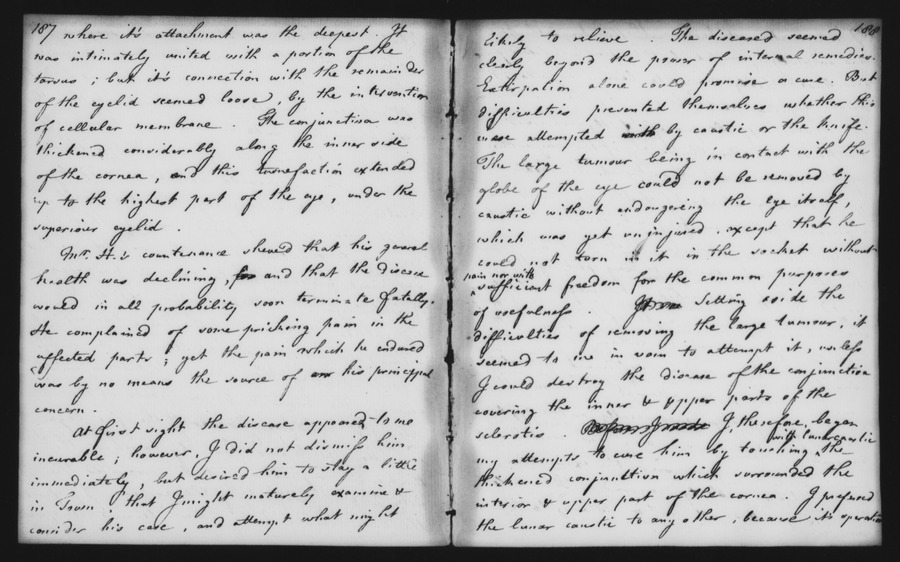 187
where it's attachment was the deepest. It
was intimately united with a portion of the
tarsus; but it's connection with the remainder
of the eyelid seemed loose, by the intervention
of cellular membrane. The conjunctiva was
thickened considerably along the inner side
of the cornea, and this tumefaction extended
up to the highest part of the eye, under the
superiour eyelid.
Mr. H.'s countenance shewed that his general
health was declining, and that the disease
would in all probability soon terminate fatally.
He complained of some pricking pain in the
affected parts; yet the pain which he endured
was by no means the source of his principal
concern.
At first sight the disease appeared to me
incurable; however, I did not dismiss him
immediately, but desired him to stay a little
in Town, that I might maturely examine &
consider his case, and attempt what might
188
likely to relieve. The diseased seemed
clearly beyond the power of internal remedies.
Extirpation alone could promise a cure. But
difficulties presented themselves whether this
were attempted with by caustic or the knife.
The large tumour being in contact with the
globe of the eye could not be removed by
caustic without endangering the eye itself,
which was yet uninjured, except that he
could not turn it in the socket without
pain nor with
sufficient freedom for the common purposes
of usefulness. Setting aside the
difficulties of removing the large tumour, it
seemed to me in vain to attempt it, unless
I could destroy the disease of the conjunctiva
covering the inner & upper parts of the
sclerotis. I, therefore, began
with lunar caustic
my attempts to cure him by touching the
thickened conjunctiva which surrounded the
interior & upper part of the cornea. I prefered
the lunar caustic to any other, because it's operation